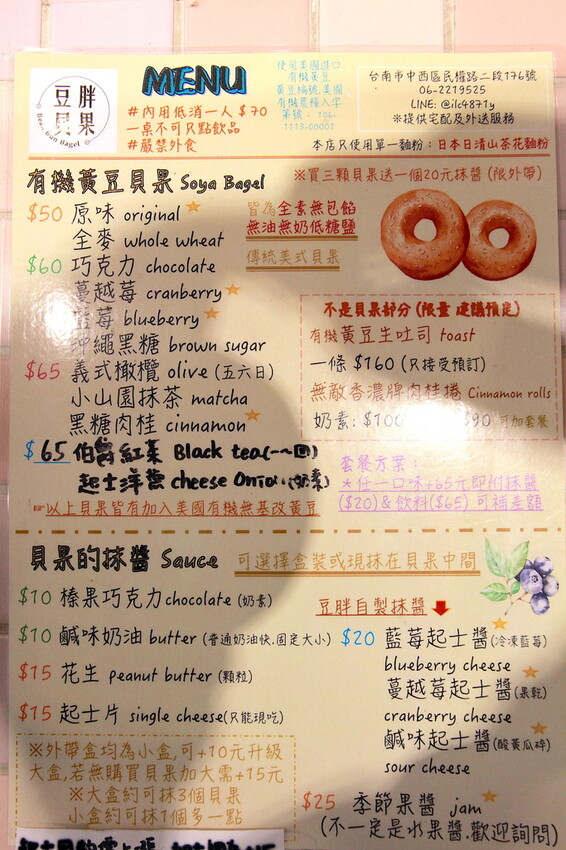 豆胖
貝果
Bean Bun Bagel
MENU
#內用低消一人 $70
一桌不可只點飲品
#嚴禁外食
使用美國進口
有機黃豆
黃豆編號:美國
有機農糧入字
第號: 106-
1113-00001
台南市中西區民權路二段176號
06-2219525
LINE: @ilc4871y
※提供宅配及外送服務
本店只使用單一麵粉:日本日清山茶花麵粉
有機黃豆貝果 Soya Bagel
※買三顆貝果送一個20元抹醬 (限外帶)
$50 原味 original
全麥 whole wheat
$60 巧克力 chocolate
蔓越莓 cranberry
藍莓 blueberry
沖繩黑糖 brown sugar
$65 義式橄欖 olive (五六日)
小山園抹茶 matcha
黑糖肉桂 cinnamon
$65 伯爵紅茶 Black tea(一~四)
起士洋蔥 cheese Onion(奶素)
☞以上貝果皆有加入美國有機無基改黃豆
皆為全素無包餡
無油無奶低糖鹽
傳統美式貝果
不是貝果部分 (限量 建議預定)
有機黃豆生吐司 toast
一條 $160 (只接受預訂)
無敵香濃脾肉桂捲 Cinnamon rolls
奶素: $100 $90 可加套餐
套餐方案:
*任一口味+65元即附抹醬
($20)&飲料($65) 可補差額
貝果的抹醬 Sauce 可選擇盒裝或現抹在貝果中間
$10 榛果巧克力chocolate (奶素)
$10 鹹味奶油 butter (普通奶油快.固定大小)
$15 花生 peanut butter (顆粒)
$15 起士片 single cheese(只能現吃)
豆胖自製抹醬
$20 藍莓起士醬(冷凍藍莓)
blueberry cheese
蔓越莓起士醬(果乾)
cranberry cheese
鹹味起士醬(酸黃瓜碎)
sour cheese
$25 季節果醬 jam
(不一定是水果醬.歡迎詢問)
※外帶盒均為小盒,可+10元升級
大盒,若無購買貝果加大需+15元
※大盒約可抹3個貝果
小盒約可抹1個多一點